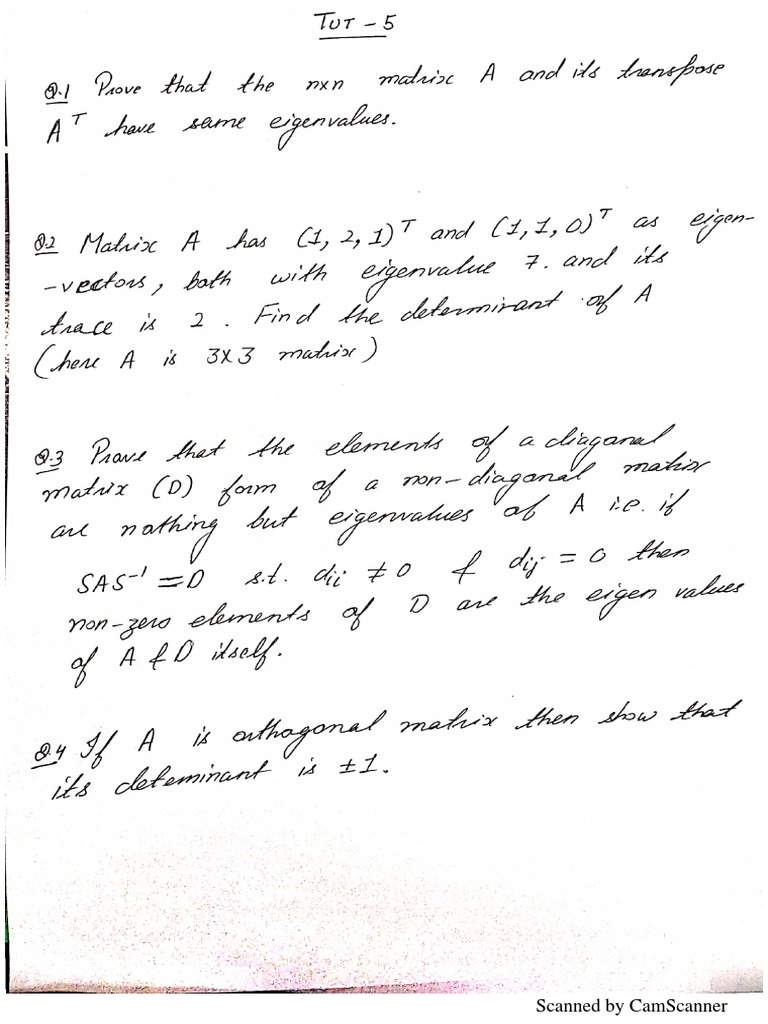 TUT - 5
Q.1 Prove that the nxn matrix A and its transpose
A^T have same eigenvalues.
Q.2 Matrix A has (1, 2, 1)^T and (1, 1, 0)^T as eigen-
-vectors, both with eigenvalue 7. and its
trace is 2. Find the determinant of A
(here A is 3X3 matrix)
Q.3 Prove that the elements of a diagonal
matrix (D) form of a non-diagonal matrix
are nothing but eigenvalues of A i.e. if
SAS^-1 = D s.t. dii ≠ 0 & dij = 0 then
non-zero elements of D are the eigen values
of A & D itself.
Q.4 If A is orthogonal matrix then show that
its deteminant is ±1.
Scanned by CamScanner